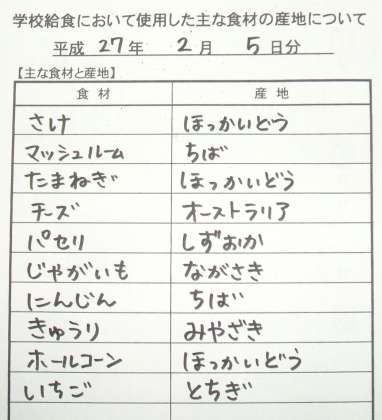 学校給食において使用した主な食材の産地について
平成 27 年 2 月 5 日分
【主な食材と産地】
食材 産地
さけ ほっかいどう
マッシュルーム ちば
たまねぎ ほっかいどう
チーズ オーストラリア
パセリ しずおか
じゃがいも ながさき
にんじん ちば
きゅうり みやざき
ホールコーン ほっかいどう
いちご とちぎ